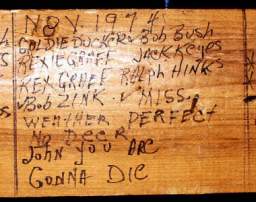 NOV. 1974
GOLDIE DUCKER ✓ Bob Bush
REX IE GRAFF JACK KEYES
REX GRAFF RALPH HINKS
✓ Bob ZINK ✓ MISS.
WEATHER PERFECT
NO DEER
JOHN YOU ARE
GONNA DIE